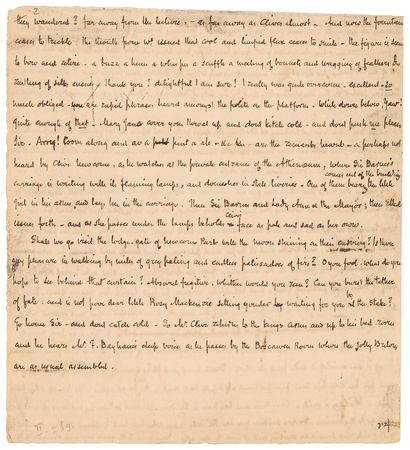 2
they wandered? far away from the lecture. – as far away as Clive's almost. – And now the fountain
ceases to trickle. the mouth from wh. issued that cool and limpid flux ceases to smile – the figure is seen
to bow and retire – a buzz a hum a whisper a scuffle a meeting of bonnets and wagging of feathers &
rustling of silks ensues, Thank you! delightful I am sure! I really was quite overcome. excellent – So
much obliged. are rapid phrases heard amongst the polite on the platform. While down below, Yaw!
quite enough of that – Mary Jane cover your throat up and dont kitch cold – and dont push me please
Sir. Arry! Coom along and av a pint a ale – &c &c – are the remarks heard – or perhaps not
heard by Clive Newcome, as he watches at the private entrance of the Athenæum, where Sir Barnes's
corner end of the building
carriage is waiting with its flaming lamps, and domestics in state liveries – One of them bears the little
girl in his arms and lays her in the carriage. Then Sir Barnes and Lady Ann & the Major; then Ethel
issues forth – and as she passes under the lamps beholds Clive's face as pale and sad as her own.
Shall we go visit the lodge-gates of Newcome Park with the moon shining on their carving? Is there
any pleasure in walking by miles of grey paling and endless palisadoes of firs? O you fool, what do you
hope to see behind that curtain? Absurd fugitive, whither would you run? Can you burst the tether
of fate: and is not poor dear little Rosey Mackenzie sitting yonder waiting for you by the stake?
Go home Sir – and dont catch cold – So Mr. Clive returns to the Kings Arms and up to his bed-room
and he hears Mr. F. Bayham's deep voice as he passes by the Boscawen Room where the Jolly Britons
are as usual assembled.